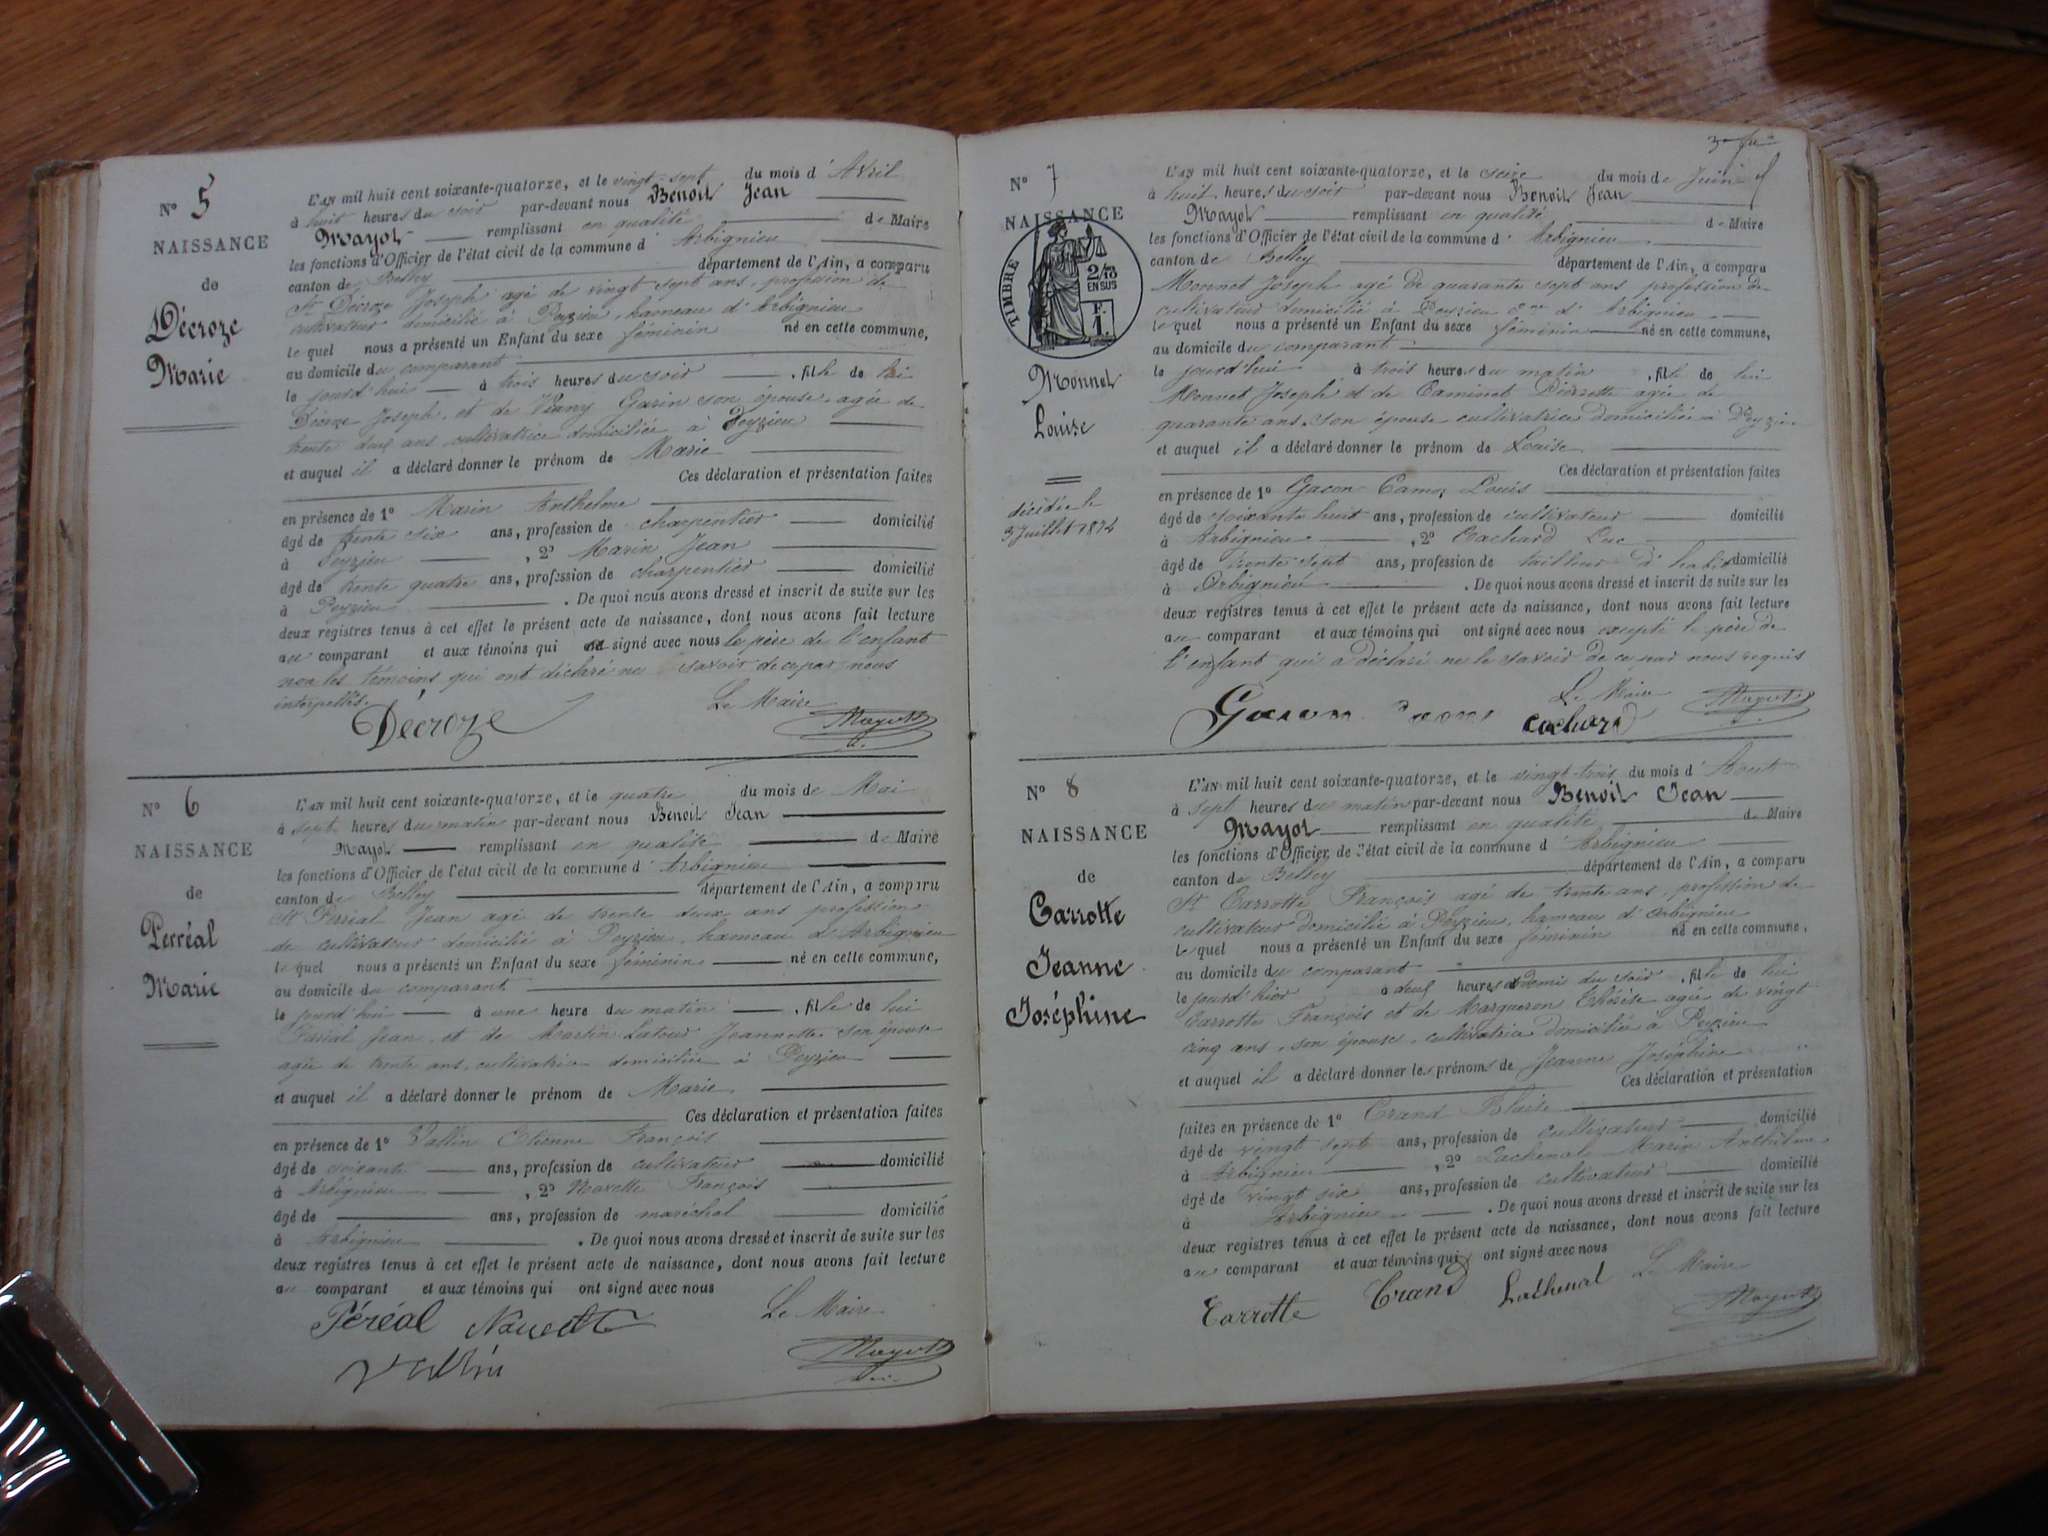 N° 5
NAISSANCE
de
Décroze
Marie
L'AN mil huit cent soixante-quatorze, et le vingt-sept du mois d'Avril
à huit heures du soir par-devant nous Benoit Jean
Mayot remplissant en qualité de Maire
les fonctions d'Officier de l'état civil de la commune d'Arbignieu
canton de Belley département de l'Ain, a comparu
St Décroze Joseph agé de vingt sept ans, profession de
cultivateur domicilié à Peyzieu, hameau d'Arbignieu
lequel nous a présenté un Enfant du sexe féminin né en cette commune,
au domicile du comparant
le jourd'hui à trois heures du soir, fille de lui
Décroze Joseph, et de Garin son épouse, agée de
trente deux ans cultivatrice domiciliée à Peyzieu
et auquel il a déclaré donner le prénom de Marie
Ces déclaration et présentation faites
en présence de 1° Marin Anthelme
âgé de trente six ans, profession de charpentier domicilié
à Peyzieu, 2° Marin Jean
âgé de trente quatre ans, profession de charpentier domicilié
à Peyzieu. De quoi nous avons dressé et inscrit de suite sur les
deux registres tenus à cet effet le présent acte de naissance, dont nous avons fait lecture
au comparant et aux témoins qui signé avec nous le père de l'enfant
non les témoins qui ont déclaré ne savoir de ce par nous
interpellés.
Le Maire
Décroze Mayot
N° 6
NAISSANCE
de
Perréal
Marie
L'AN mil huit cent soixante-quatorze, et le quatre du mois de Mai
à sept heures du matin par-devant nous Benoit Jean
Mayot remplissant en qualité de Maire
les fonctions d'Officier de l'état civil de la commune d'Arbignieu
canton de Belley département de l'Ain, a comparu
St Perréal Jean agé de trente deux ans profession
de cultivateur domicilié à Peyzieu, hameau d'Arbignieu
lequel nous a présenté un Enfant du sexe féminin né en cette commune,
au domicile du comparant
le jourd'hui à une heure du matin, fille de lui
Perréal Jean, et de Martin Latour Jeannette son épouse
agée de trente ans, cultivatrice domiciliée à Peyzieu
et auquel il a déclaré donner le prénom de Marie
Ces déclaration et présentation faites
en présence de 1° Vallin Etienne François
âgé de soixante ans, profession de cultivateur domicilié
à Arbignieu, 2° François
âgé de ans, profession de maréchal domicilié
à Arbignieu. De quoi nous avons dressé et inscrit de suite sur les
deux registres tenus à cet effet le présent acte de naissance, dont nous avons fait lecture
au comparant et aux témoins qui ont signé avec nous
Le Maire
Péréal
Vallin Mayot
3e fet
N° 7
NAISSANCE
TIMBRE
2/10
EN SUS
F.
1.
Monnet
Louise
décédée le
3 Juillet 1874
L'AN mil huit cent soixante-quatorze, et le seize du mois de Juin
à huit heures du soir par-devant nous Benoit Jean
Mayot remplissant en qualité de Maire
les fonctions d'Officier de l'état civil de la commune d'Arbignieu
canton de Belley département de l'Ain, a comparu
Monnet Joseph agé de quarante sept ans profession de
cultivateur domicilié à Peyzieu d'Arbignieu
lequel nous a présenté un Enfant du sexe féminin né en cette commune,
au domicile du comparant
le jourd'hui à trois heures du matin, fille de lui
Monnet Joseph et de Caminet Pierrette agée de
quarante ans, son épouse cultivatrice domiciliée à Peyzieu
et auquel il a déclaré donner le prénom de Louise
Ces déclaration et présentation faites
en présence de 1° Gacon Louis
âgé de soixante huit ans, profession de cultivateur domicilié
à Arbignieu, 2° Cachard Luc
âgé de trente sept ans, profession de tailleur d'habits domicilié
à Arbignieu. De quoi nous avons dressé et inscrit de suite sur les
deux registres tenus à cet effet le présent acte de naissance, dont nous avons fait lecture
au comparant et aux témoins qui ont signé avec nous excepté le père de
l'enfant qui a déclaré ne le savoir de ce par nous requis
Le Maire
Gacon cachard Mayot
N° 8
NAISSANCE
de
Carrotte
Jeanne
Joséphine
L'AN mil huit cent soixante-quatorze, et le vingt-trois du mois d'Août
à sept heures du matin par-devant nous Benoit Jean
Mayot remplissant en qualité de Maire
les fonctions d'Officier de l'état civil de la commune d'Arbignieu
canton de Belley département de l'Ain, a comparu
St Carrotte François agé de trente ans, profession de
cultivateur domicilié à Peyzieu, hameau d'Arbignieu
lequel nous a présenté un Enfant du sexe féminin né en cette commune,
au domicile du comparant
le jourd'hier à deux heures et demi du soir, fille de lui
Carrotte François et de Margueron Thérèse agée de vingt
cinq ans, son épouse, cultivatrice domiciliée à Peyzieu
et auquel il a déclaré donner les prénoms de Jeanne Joséphine
Ces déclaration et présentation
faites en présence de 1° Crand Blaise
âgé de vingt sept ans, profession de cultivateur domicilié
à Arbignieu, 2° Lachenal Marin Anthelme
âgé de vingt six ans, profession de cultivateur domicilié
à Arbignieu. De quoi nous avons dressé et inscrit de suite sur les
deux registres tenus à cet effet le présent acte de naissance, dont nous avons fait lecture
au comparant et aux témoins qui ont signé avec nous
Le Maire
Carrotte Crand Lachenal Mayot